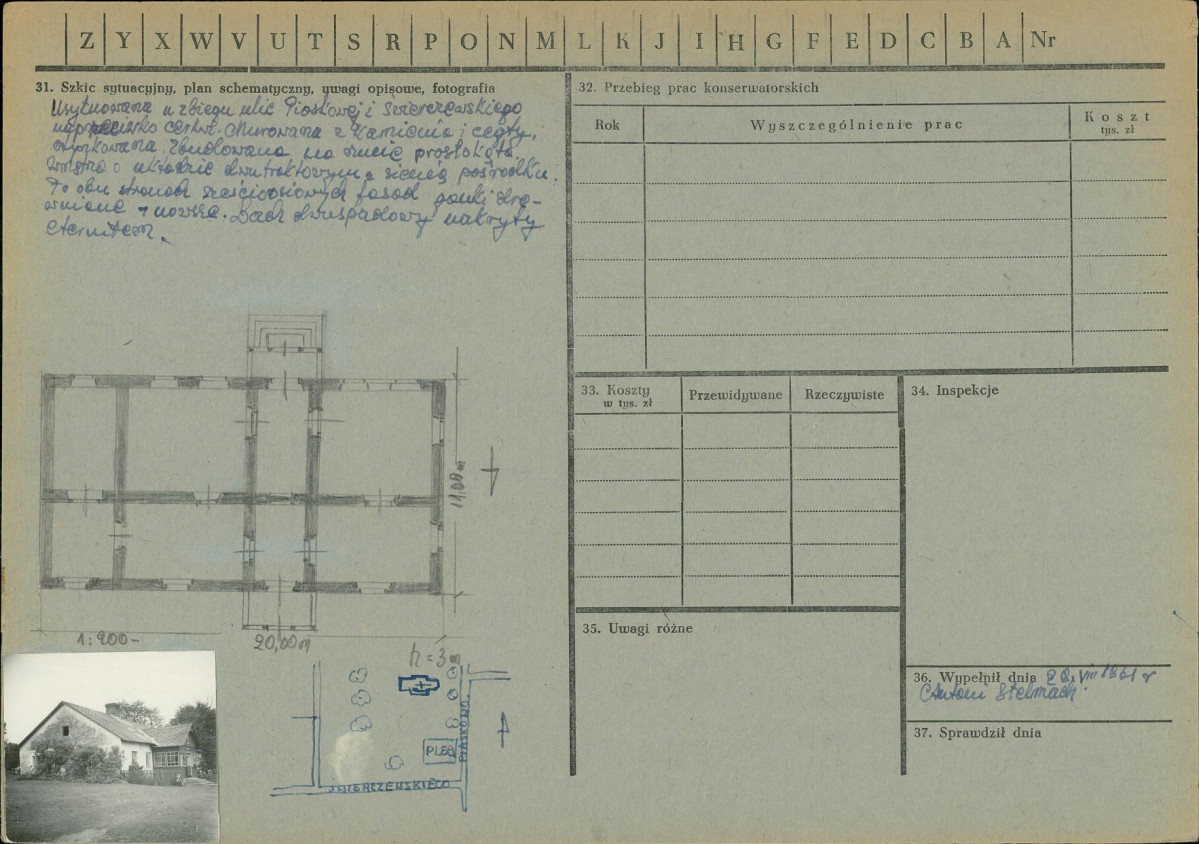 Z Y X W V U T S R P O N M L K J I H G F E D C B A Nr
31. Szkic sytuacyjny, plan schematyczny, uwagi opisowe, fotografia
Usytuowana u zbiegu ulic Piaskowej i Świerczewskiego
naprzeciwko cerkwi. Murowana z kamienia i cegły,
otynkowana. Zbudowana na rzucie prostokąta.
Wnętrze o układzie dwutraktowym z sienią pośrodku.
Po obu stronach sześcioosiowych fasad ganki dre-
wniane nowsze. Dach dwuspadowy nakryty
eternitem.
11,00 m
1:200-
20,00 m
h = 3 m
PLEB
PIASKOWA
ŚWIERCZEWSKIEGO
32. Przebieg prac konserwatorskich
Rok
Wyszczególnienie prac
Koszt
tys. zł
33. Koszty
w tys. zł
Przewidywane
Rzeczywiste
34. Inspekcje
35. Uwagi różne
36. Wypełnił dnia VIII 1961 r
Antoni Stelmach
37. Sprawdził dnia